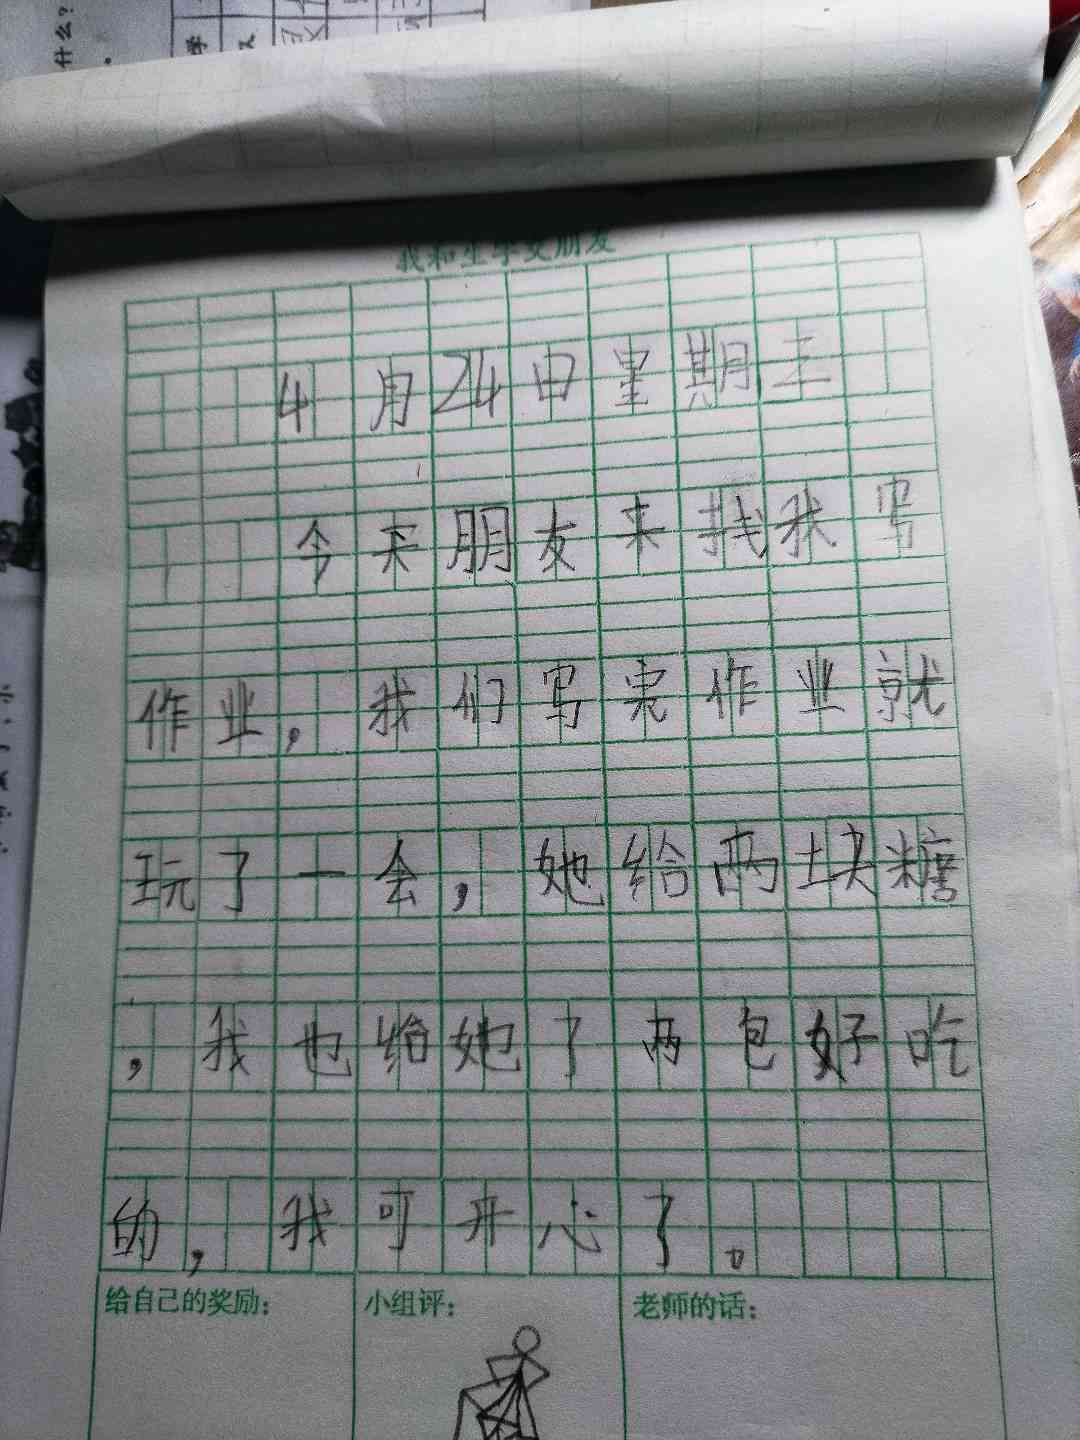 什么?
学
我和生字交朋友
4月24日星期三
今天朋友来找我写
作业,我们写完作业就
玩了一会,她给两块糖
,我也给她了两包好吃
的,我可开心了。
给自己的奖励:
小组评:
老师的话: